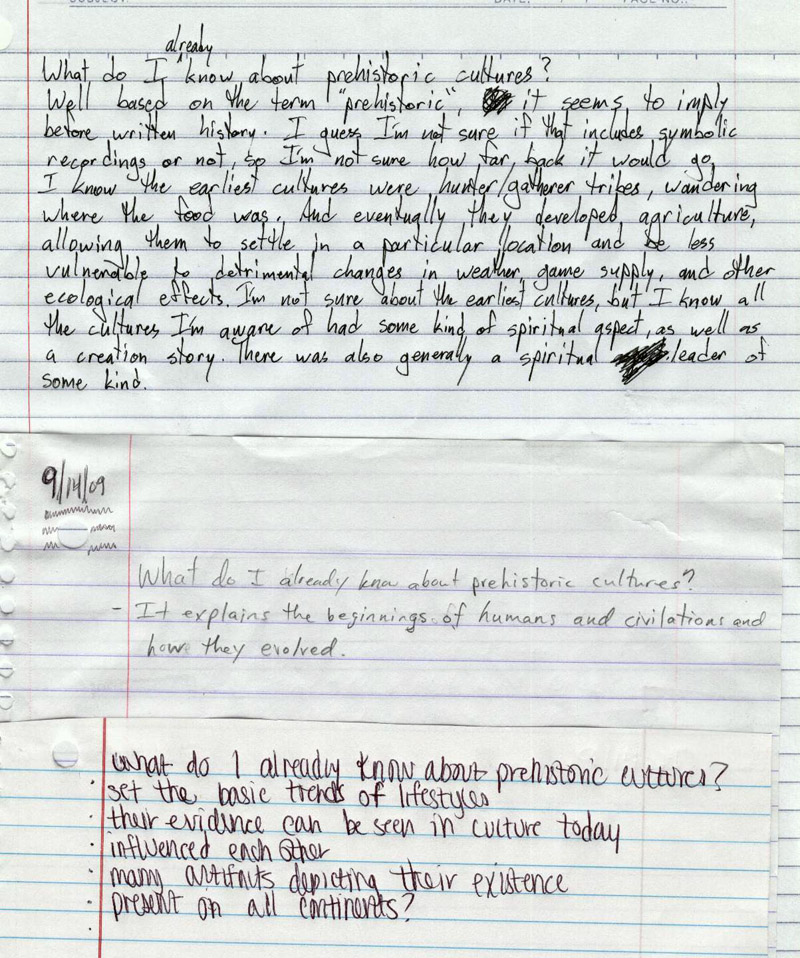 SUBJECT: DATE: / / PAGE NO.:
already
What do I ^ know about prehistoric cultures?
Well based on the term "prehistoric", it seems to imply
before written history. I guess I'm not sure if that includes symbolic
recordings or not, so I'm not sure how far back it would go.
I know the earliest cultures were hunter/gatherer tribes, wandering
where the food was. And eventually they developed agriculture,
allowing them to settle in a particular location and be less
vulnerable to detrimental changes in weather, game supply, and other
ecological effects. I'm not sure about the earliest cultures, but I know all
the cultures I'm aware of had some kind of spiritual aspect, as well as
a creation story. There was also generally a spiritual leader of
some kind.
9/14/09
What do I already know about prehistoric cultures?
- It explains the beginnings of humans and civilations and
how they evolved.
what do I already know about prehistoric cultures?
· set the basic trends of lifestyles
· their evidence can be seen in culture today
· influenced each other
· many artifacts depicting their existence
· present on all continents?
·